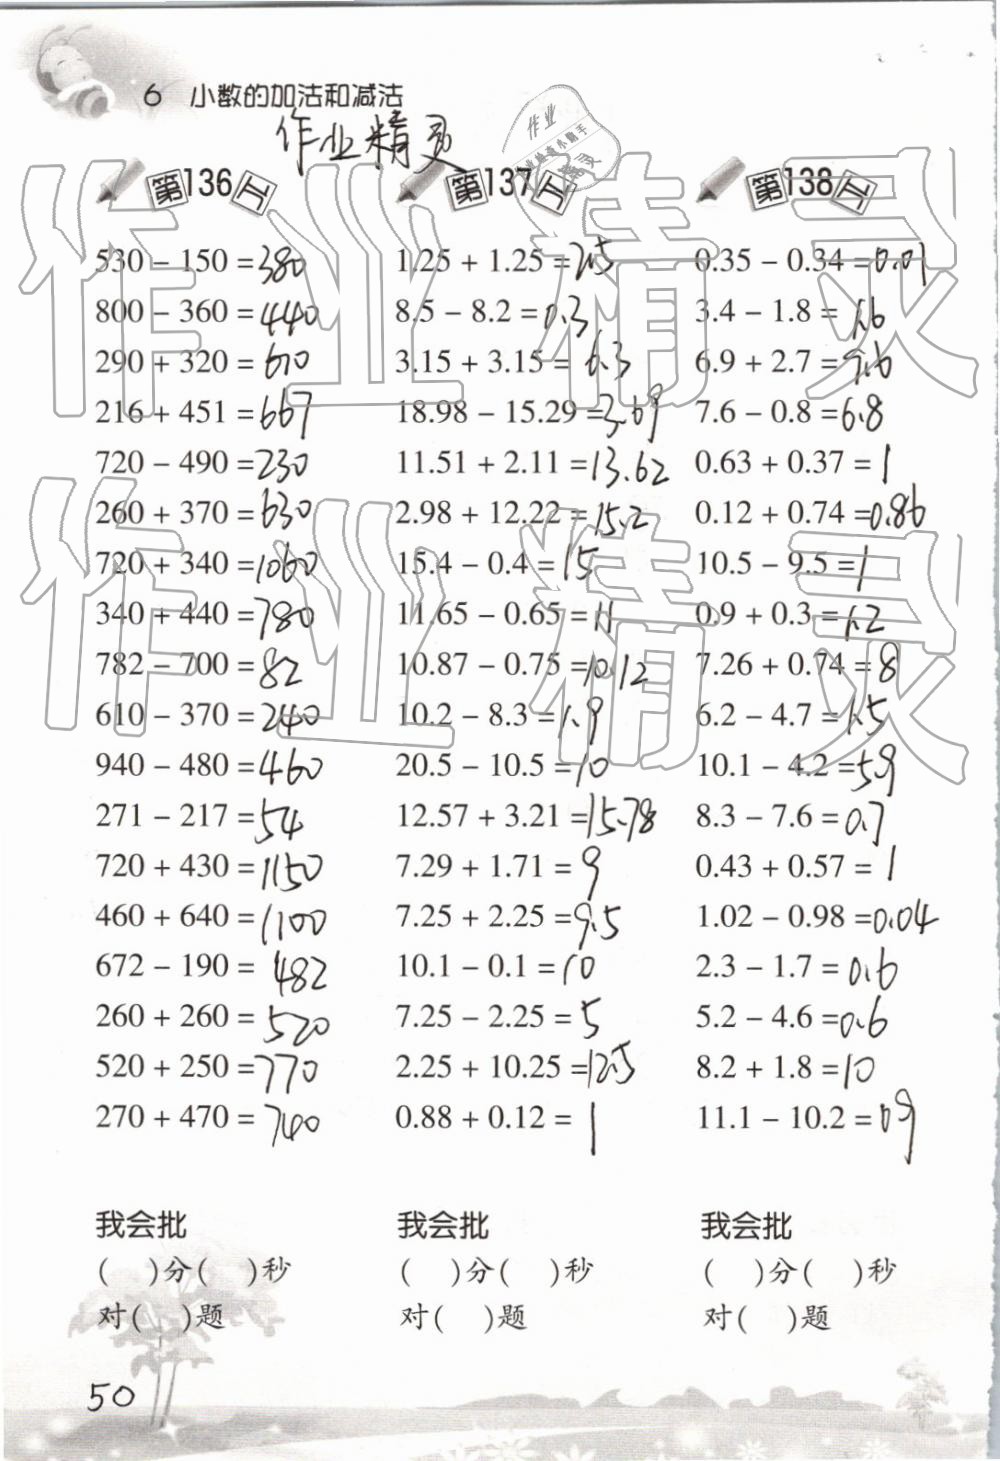 6 小数的加法和减法
作业精灵
第136工
530 − 150 = 380
800 − 360 = 440
290 + 320 = 610
216 + 451 = 667
720 − 490 = 230
260 + 370 = 630
720 + 340 = 1060
340 + 440 = 780
782 − 700 = 82
610 − 370 = 240
940 − 480 = 460
271 − 217 = 54
720 + 430 = 1150
460 + 640 = 1100
672 − 190 = 482
260 + 260 = 520
520 + 250 = 770
270 + 470 = 740
我会批
( )分( )秒
对( )题
第137工
1.25 + 1.25 = 2.5
8.5 − 8.2 = 0.3
3.15 + 3.15 = 6.3
18.98 − 15.29 = 3.69
11.51 + 2.11 = 13.62
2.98 + 12.22 = 15.2
15.4 − 0.4 = 15
11.65 − 0.65 = 11
10.87 − 0.75 = 10.12
10.2 − 8.3 = 1.9
20.5 − 10.5 = 10
12.57 + 3.21 = 15.78
7.29 + 1.71 = 9
7.25 + 2.25 = 9.5
10.1 − 0.1 = 10
7.25 − 2.25 = 5
2.25 + 10.25 = 12.5
0.88 + 0.12 = 1
我会批
( )分( )秒
对( )题
第138工
0.35 − 0.34 = 0.01
3.4 − 1.8 = 1.6
6.9 + 2.7 = 9.6
7.6 − 0.8 = 6.8
0.63 + 0.37 = 1
0.12 + 0.74 = 0.86
10.5 − 9.5 = 1
0.9 + 0.3 = 1.2
7.26 + 0.74 = 8
6.2 − 4.7 = 1.5
10.1 − 4.2 = 5.9
8.3 − 7.6 = 0.7
0.43 + 0.57 = 1
1.02 − 0.98 = 0.04
2.3 − 1.7 = 0.6
5.2 − 4.6 = 0.6
8.2 + 1.8 = 10
11.1 − 10.2 = 0.9
我会批
( )分( )秒
对( )题
50
作业精灵
作业精灵
作业